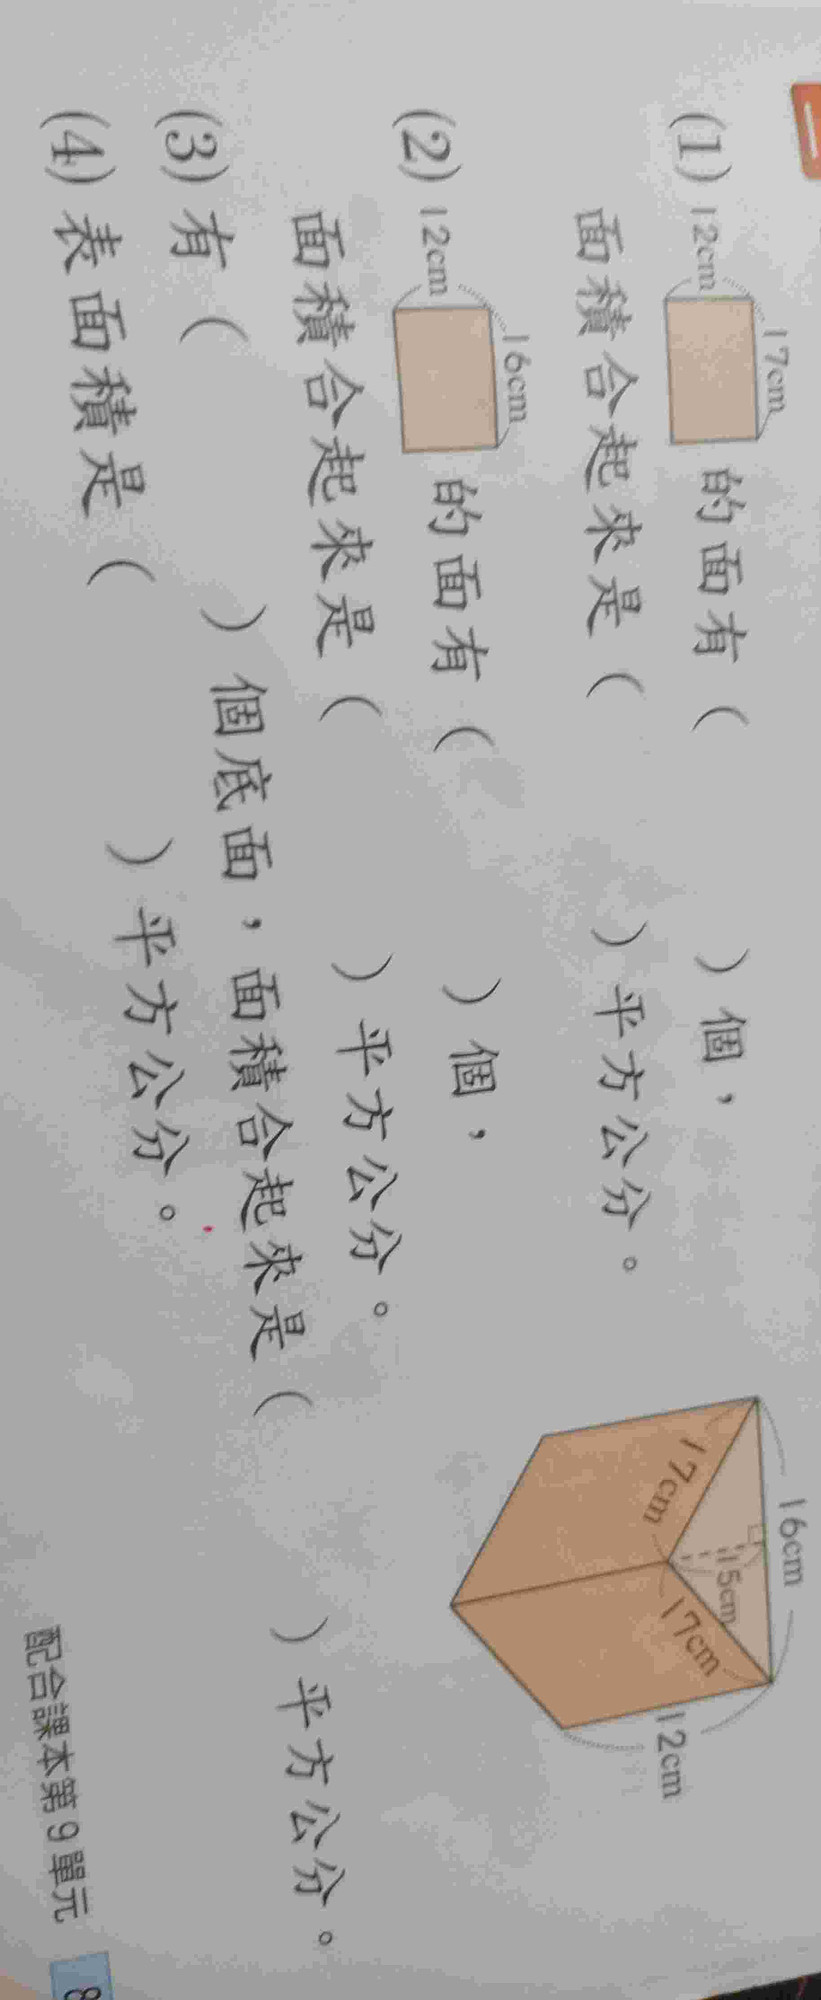 (1) 12cm 17cm 的面有( )個，
面積合起來是( )平方公分。
(2) 12cm 16cm 的面有( )個，
面積合起來是( )平方公分。
(3) 有( )個底面，面積合起來是( )平方公分。
(4) 表面積是( )平方公分。
16cm
15cm
17cm
17cm
12cm
配合課本第9單元